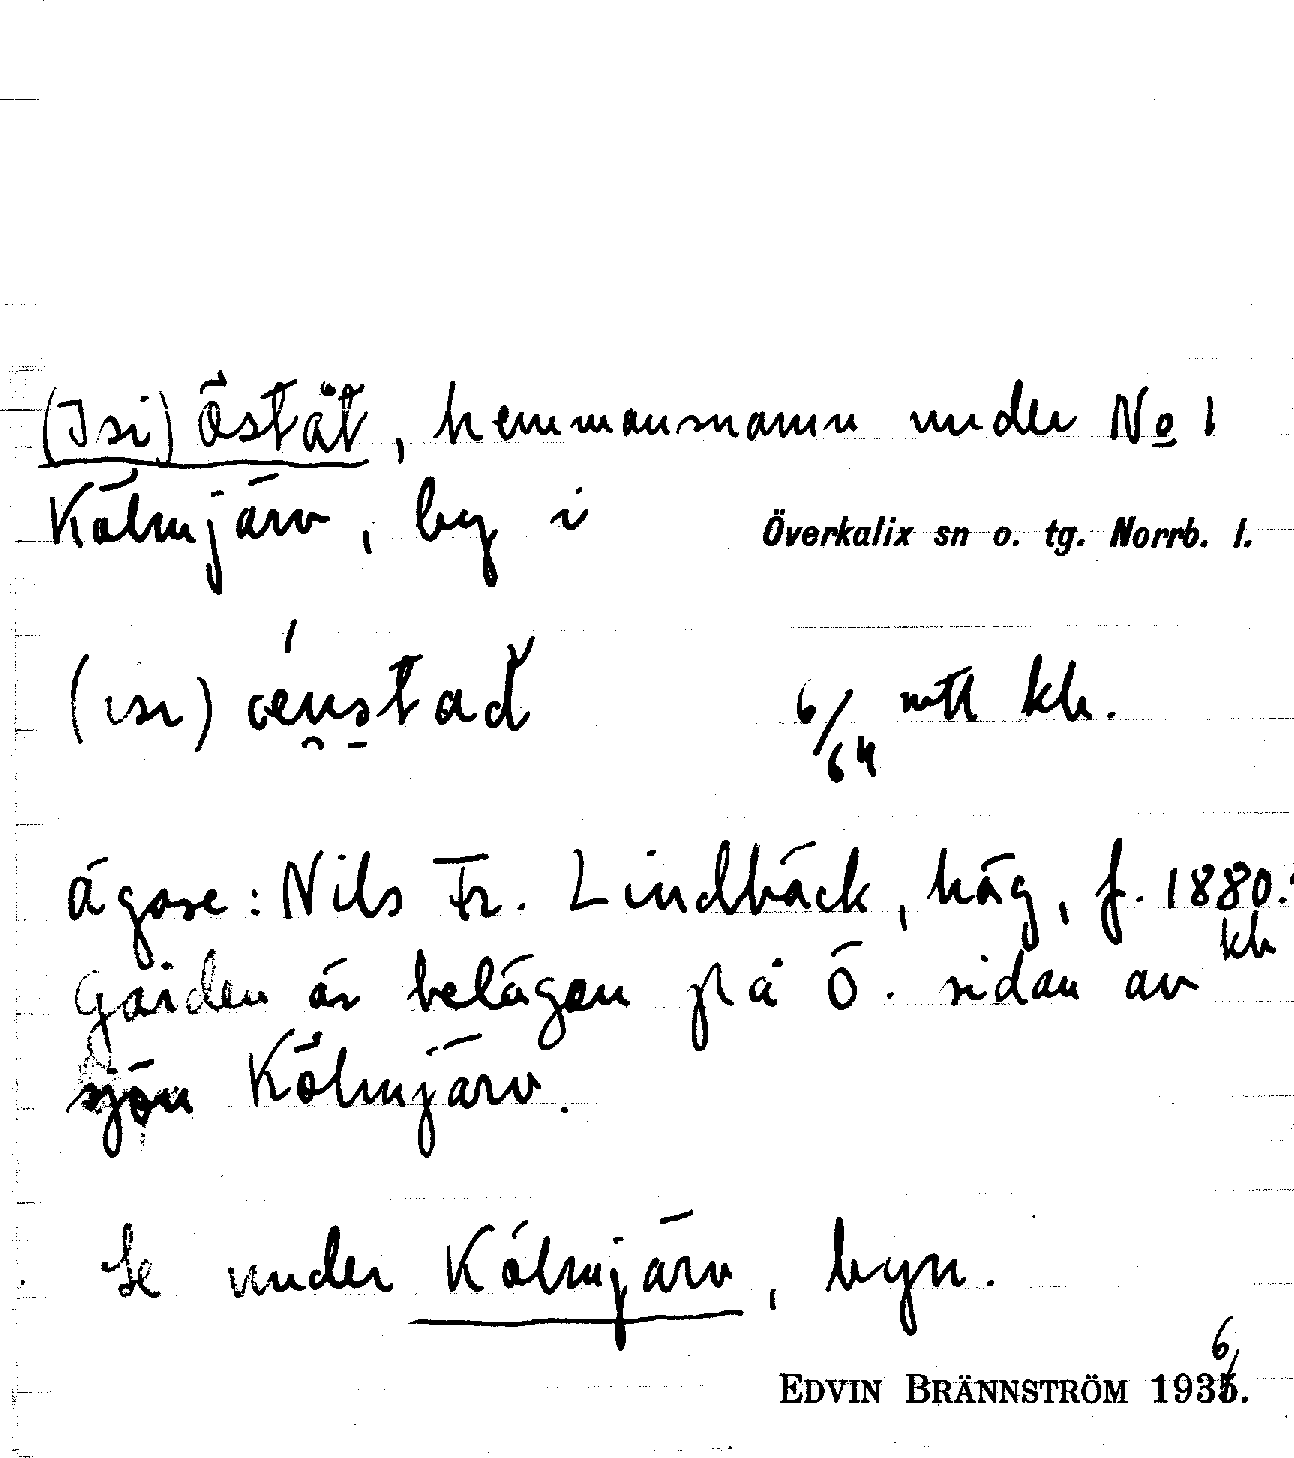 (Isi) Östät, hemmansnamn under No 1
Kölmjärv, by i Överkalix sn o. tg. Norrb. l.
(ısı) 6/64 mtl kh.
ägare: Nils Fr. Lindbäck, häg, f. 1880.
Gården är belägen på Ö. sidan av kh
sjön Kölmjärv.
Se under Kölmjärv, byn.
EDVIN BRÄNNSTRÖM 1936.